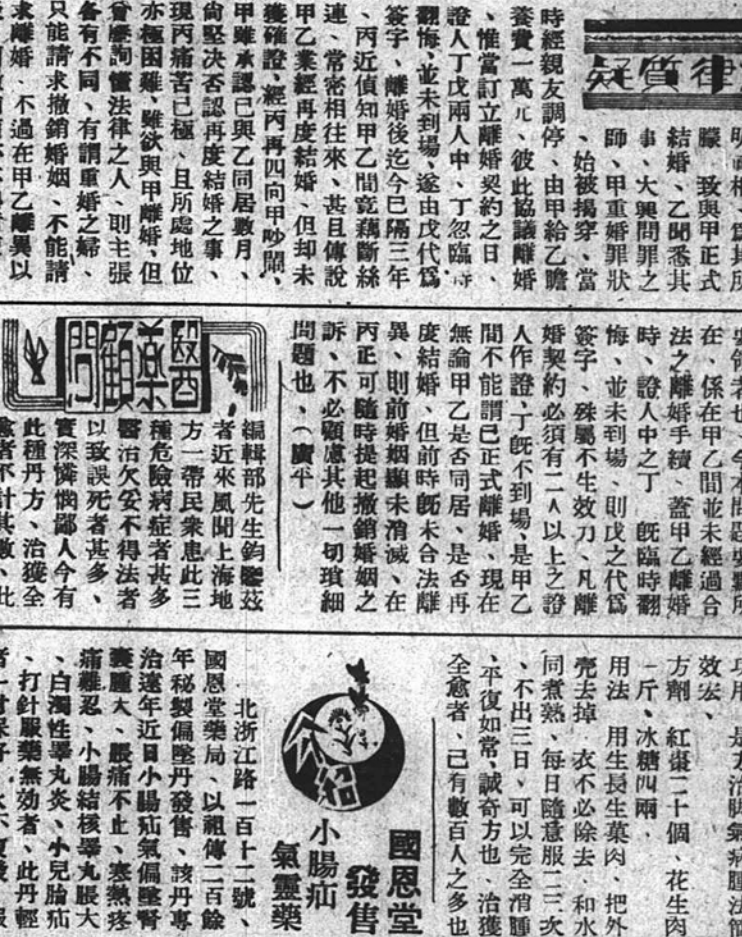 律質疑
朦、致與甲正式
結婚、乙聞悉其
事、大興問罪之
師、甲重婚罪狀
、始被揭穿、當
時經親友調停、由甲給乙贍
養費一萬元、彼此協議離婚
、惟當訂立離婚契約之日、
證人丁戊兩人中、丁忽臨時
翻悔、並未到場、遂由戊代爲
簽字、離婚後迄今已隔三年
、丙近偵知甲乙間竟藕斷絲
連、常密相往來、甚且傳說
甲乙業經再度結婚、但却未
獲確證、經丙再四向甲吵鬧、
甲雖承認已與乙同居數月、
尙堅决否認再度結婚之事、
現丙痛苦已極、且所處地位
亦極困難、雖欲與甲離婚、但
曾歷詢懂法律之人、則主張
各有不同、有謂重婚之婦、
只能請求撤銷婚姻、不能請
求離婚、不過在甲乙離異以
在、係在甲乙間並未經過合
法之離婚手續、蓋甲乙離婚
時、證人中之丁 旣臨時翻
悔、並未到場、則戊之代爲
簽字、殊屬不生效力、凡離
婚契約必須有二人以上之證
人作證、丁旣不到場、是甲乙
間不能謂已正式離婚、現在
無論甲乙是否同居、是否再
度結婚、但前時旣未合法離
異、則前婚姻顯未消滅、在
丙正可隨時提起撤銷婚姻之
訴、不必顧慮其他一切瑣細
問題也、（廣平）
醫藥顧問
編輯部先生鈞鑒茲
者近來風聞上海地
方一帶民衆患此三
種危險病症者甚多
醫治欠妥不得法者
以致誤死者甚多、
實深憐憫鄙人今有
此種丹方、治獲全
愈者不計其數、此
效宏、
方劑 紅棗二十個、花生肉
一斤、冰糖四兩、
用法 用生長生菓肉、把外
壳去掉 衣不必除去、和水
同煮熟、每日隨意服二三次
、不出三日、可以完全消腫
、平復如常、誠奇方也、治獲
全愈者、已有數百人之多也
介紹
國恩堂
發售
小腸疝
氣靈藥
北浙江路一百十二號、
國恩堂藥局、以祖傳二百餘
年秘製偏墜丹發售、該丹專
治遠年近日小腸疝氣偏墜腎
囊腫大、脹痛不止、寒熱疼
痛難忍、小腸結核睪丸脹大
、白濁性睪丸炎、小兒胎疝
、打針服藥無効者、此丹輕